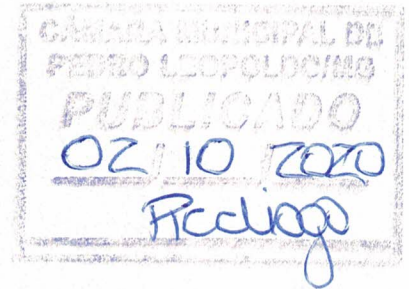 CÂMARA MUNICIPAL DE
PEDRO LEOPOLDO/MG
PUBLICADO
02 / 10 / 2020